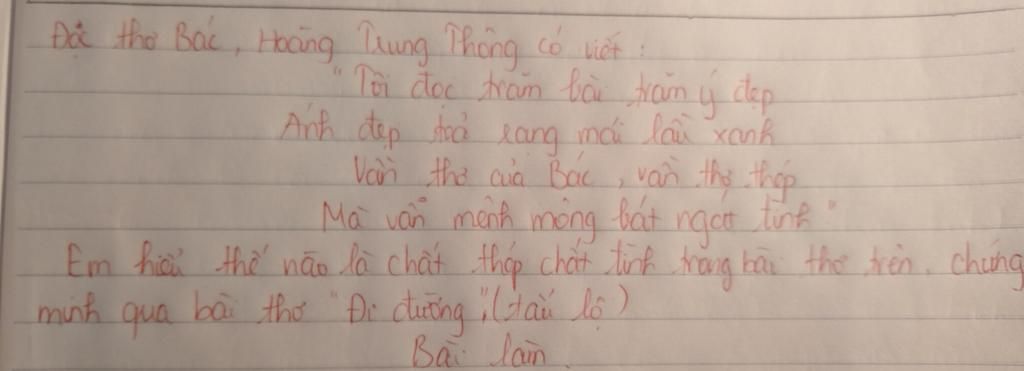 Đọc thơ Bác, Hoàng Trung Thông có viết:
"Tôi đọc trăm bài trăm ý đẹp
Ánh đẹp toả rạng mái lầu xanh
Vần thơ của Bác, vần thơ thép
Mà vẫn mênh mông bát ngát tình"
Em hiểu thế nào là chất thép chất tình trong bài thơ trên, chứng
minh qua bài thơ "Đi đường", (tẩu lộ)
Bài làm.